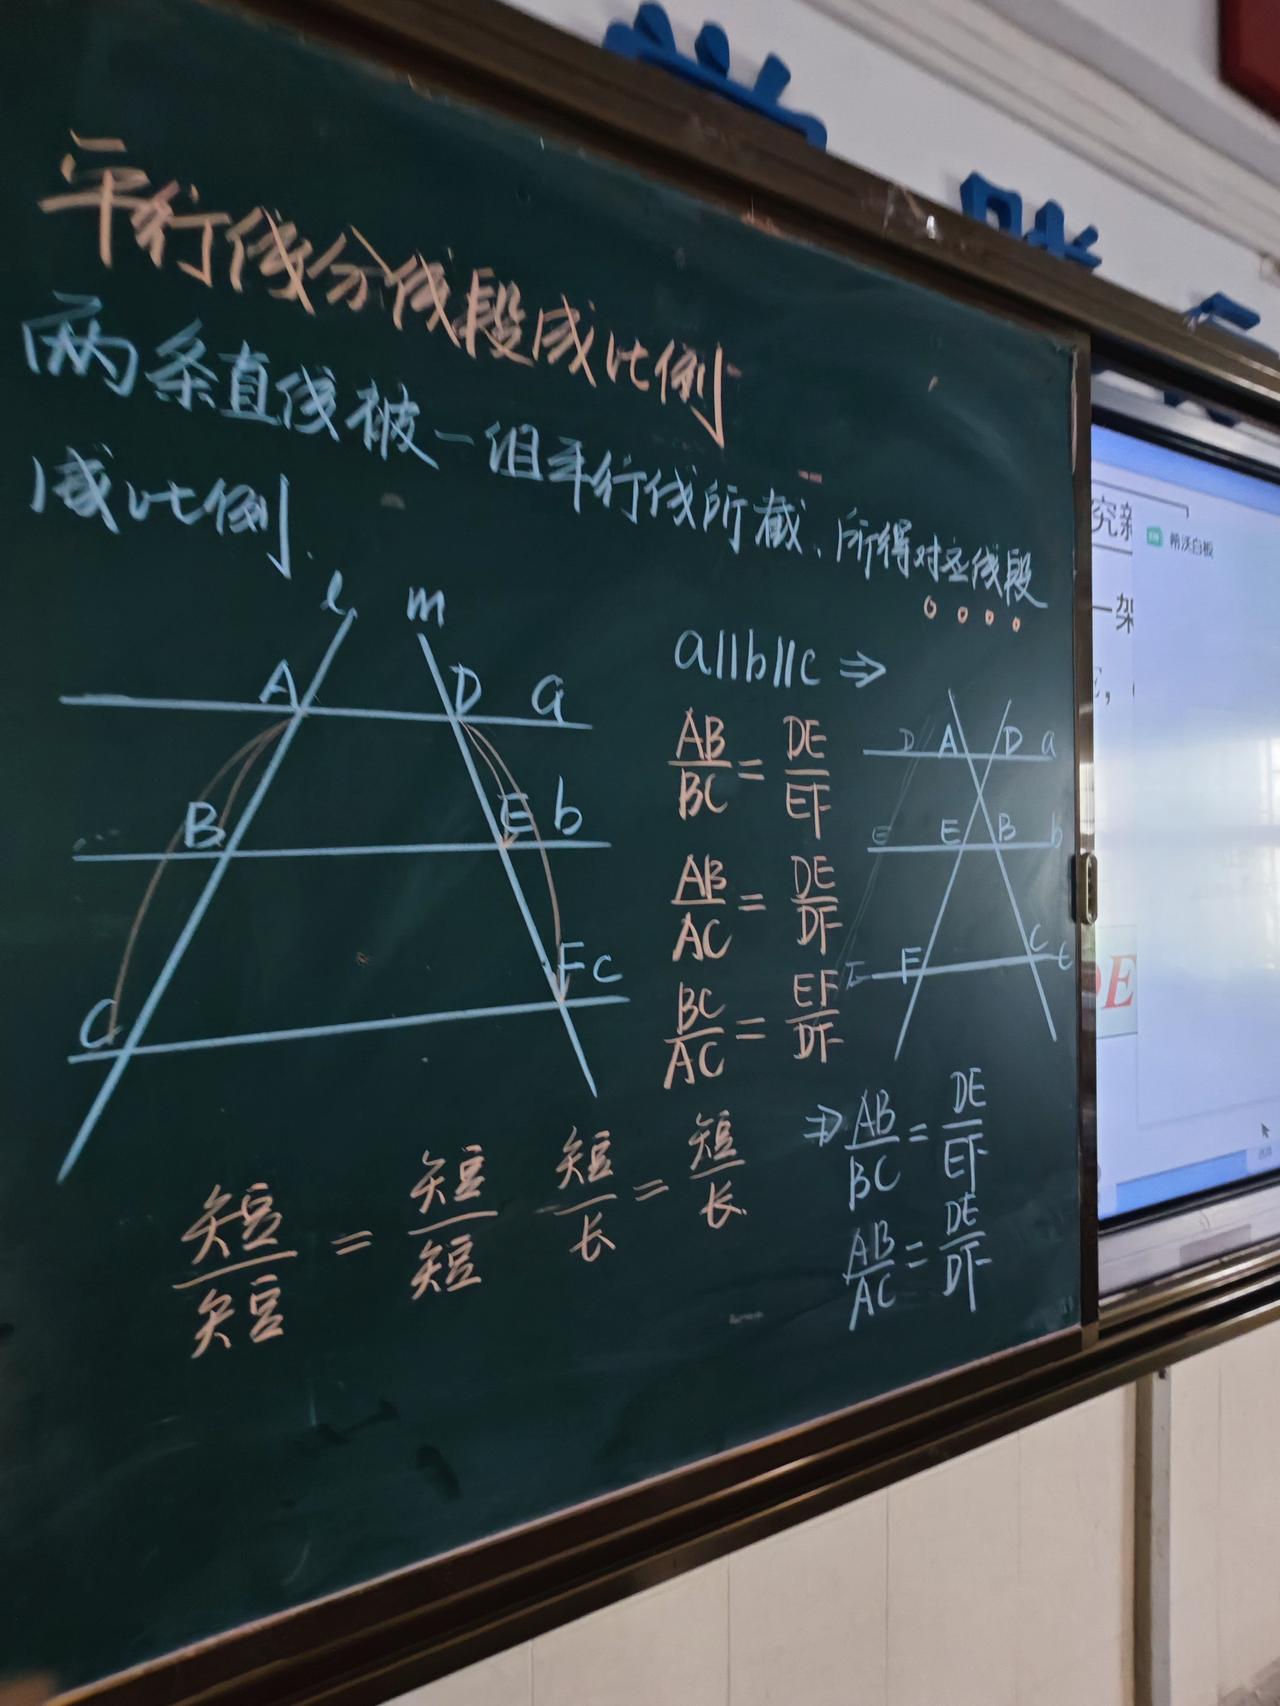 平行线分线段成比例
两条直线被一组平行线所截、所得对应线段
成比例.
l m
A D a
B E b
C F c
a∥b∥c ⇒
AB/BC = DE/EF
AB/AC = DE/DF
BC/AC = EF/DF
D A D a
E E B b
F F C c
⇒ AB/BC = DE/EF
AB/AC = DE/DF
短/短 = 短/短 短/长 = 短/长.
究新
希沃白板
一架
DE